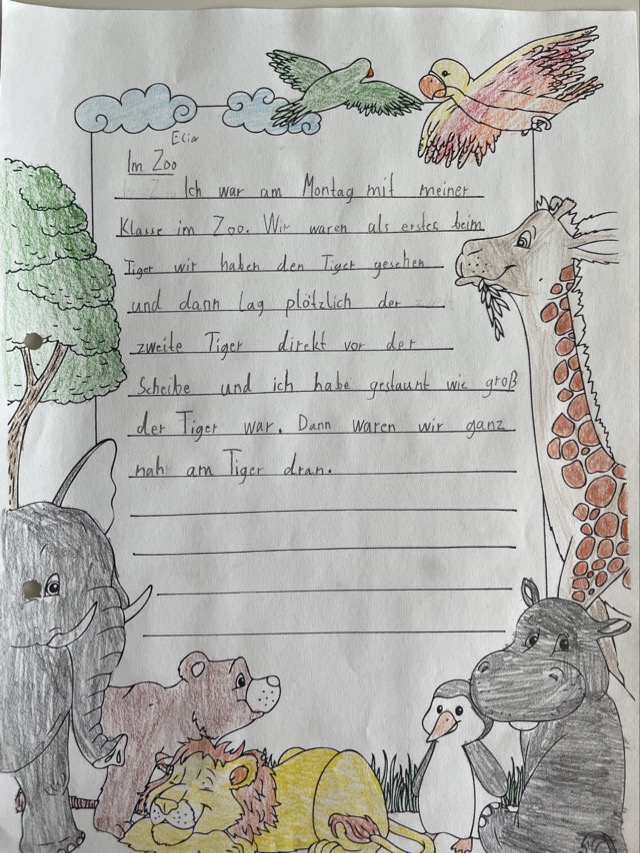 Elia
Im Zoo
Ich war am Montag mit meiner
Klasse im Zoo. Wir waren als erstes beim
Tiger wir haben den Tiger gesehen
und dann lag plötzlich der
zweite Tiger direkt vor der
Scheibe und ich habe gestaunt wie groß
der Tiger war. Dann waren wir ganz
nah am Tiger dran.